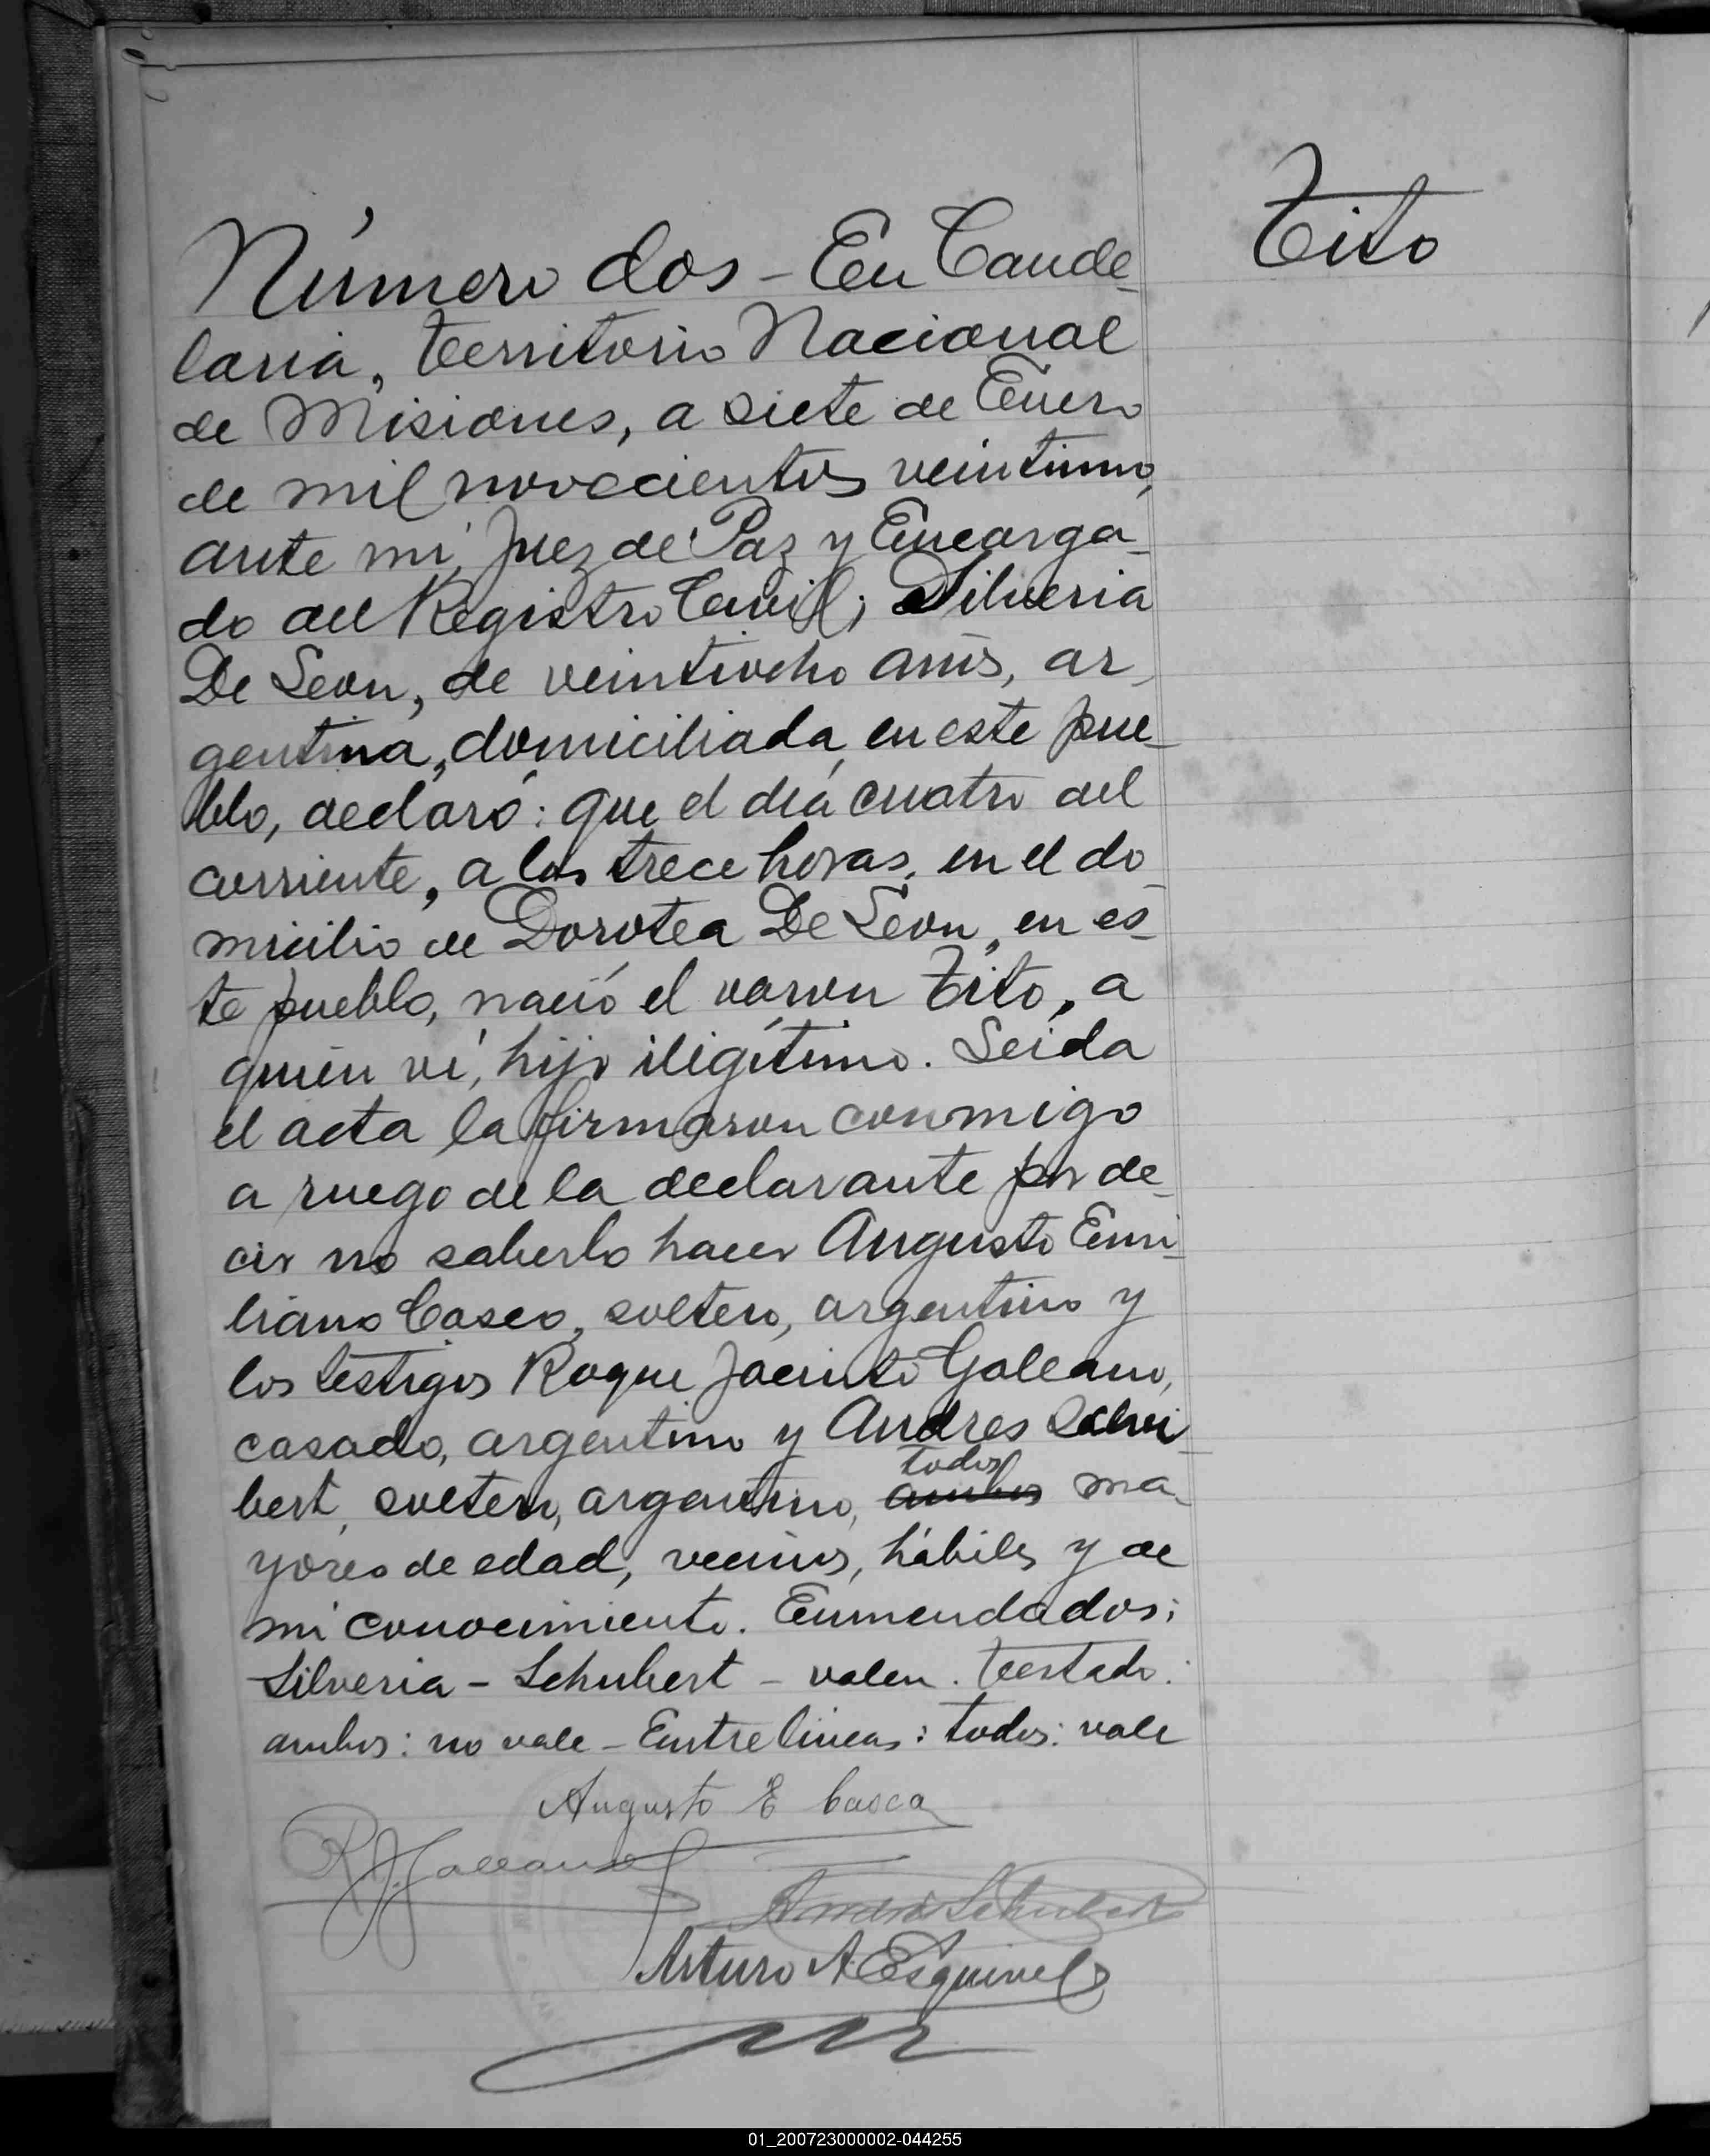 Tito
Número dos - En Cande-
laria, territorio Nacional
de Misiones, a siete de Enero
de mil novecientos veintiuno,
ante mí, Juez de Paz y Encarga-
do del Registro Civil; Silveria
De Leon, de veintiocho años, ar-
gentina, domiciliada en este pue-
blo, declaró: que el día cuatro del
corriente, a las trece horas, en el do-
micilio de Dorotea De Leon, en es-
te pueblo, nació el varon Tito, a
quien ví, hijo ilegítimo. Leida
el acta la firmaron conmigo
a ruego de la declarante por de-
cir no saberlo hacer Augusto Emi-
liano Casco, soltero, argentino y
los testigos Roque Jacinto Galeano,
casado, argentino y Andres Schu-
todos
bert, soltero, argentino, ambos ma-
yores de edad, vecinos, hábiles y de
mi conocimiento. Enmendados:
Silveria - Schubert - valen. Testado:
ambos: no vale - Entrelíneas: todos: vale
Augusto E Casco
R. J. Galeano
Andrés Schubert
Arturo A. Esquivel
01_200723000002-044255